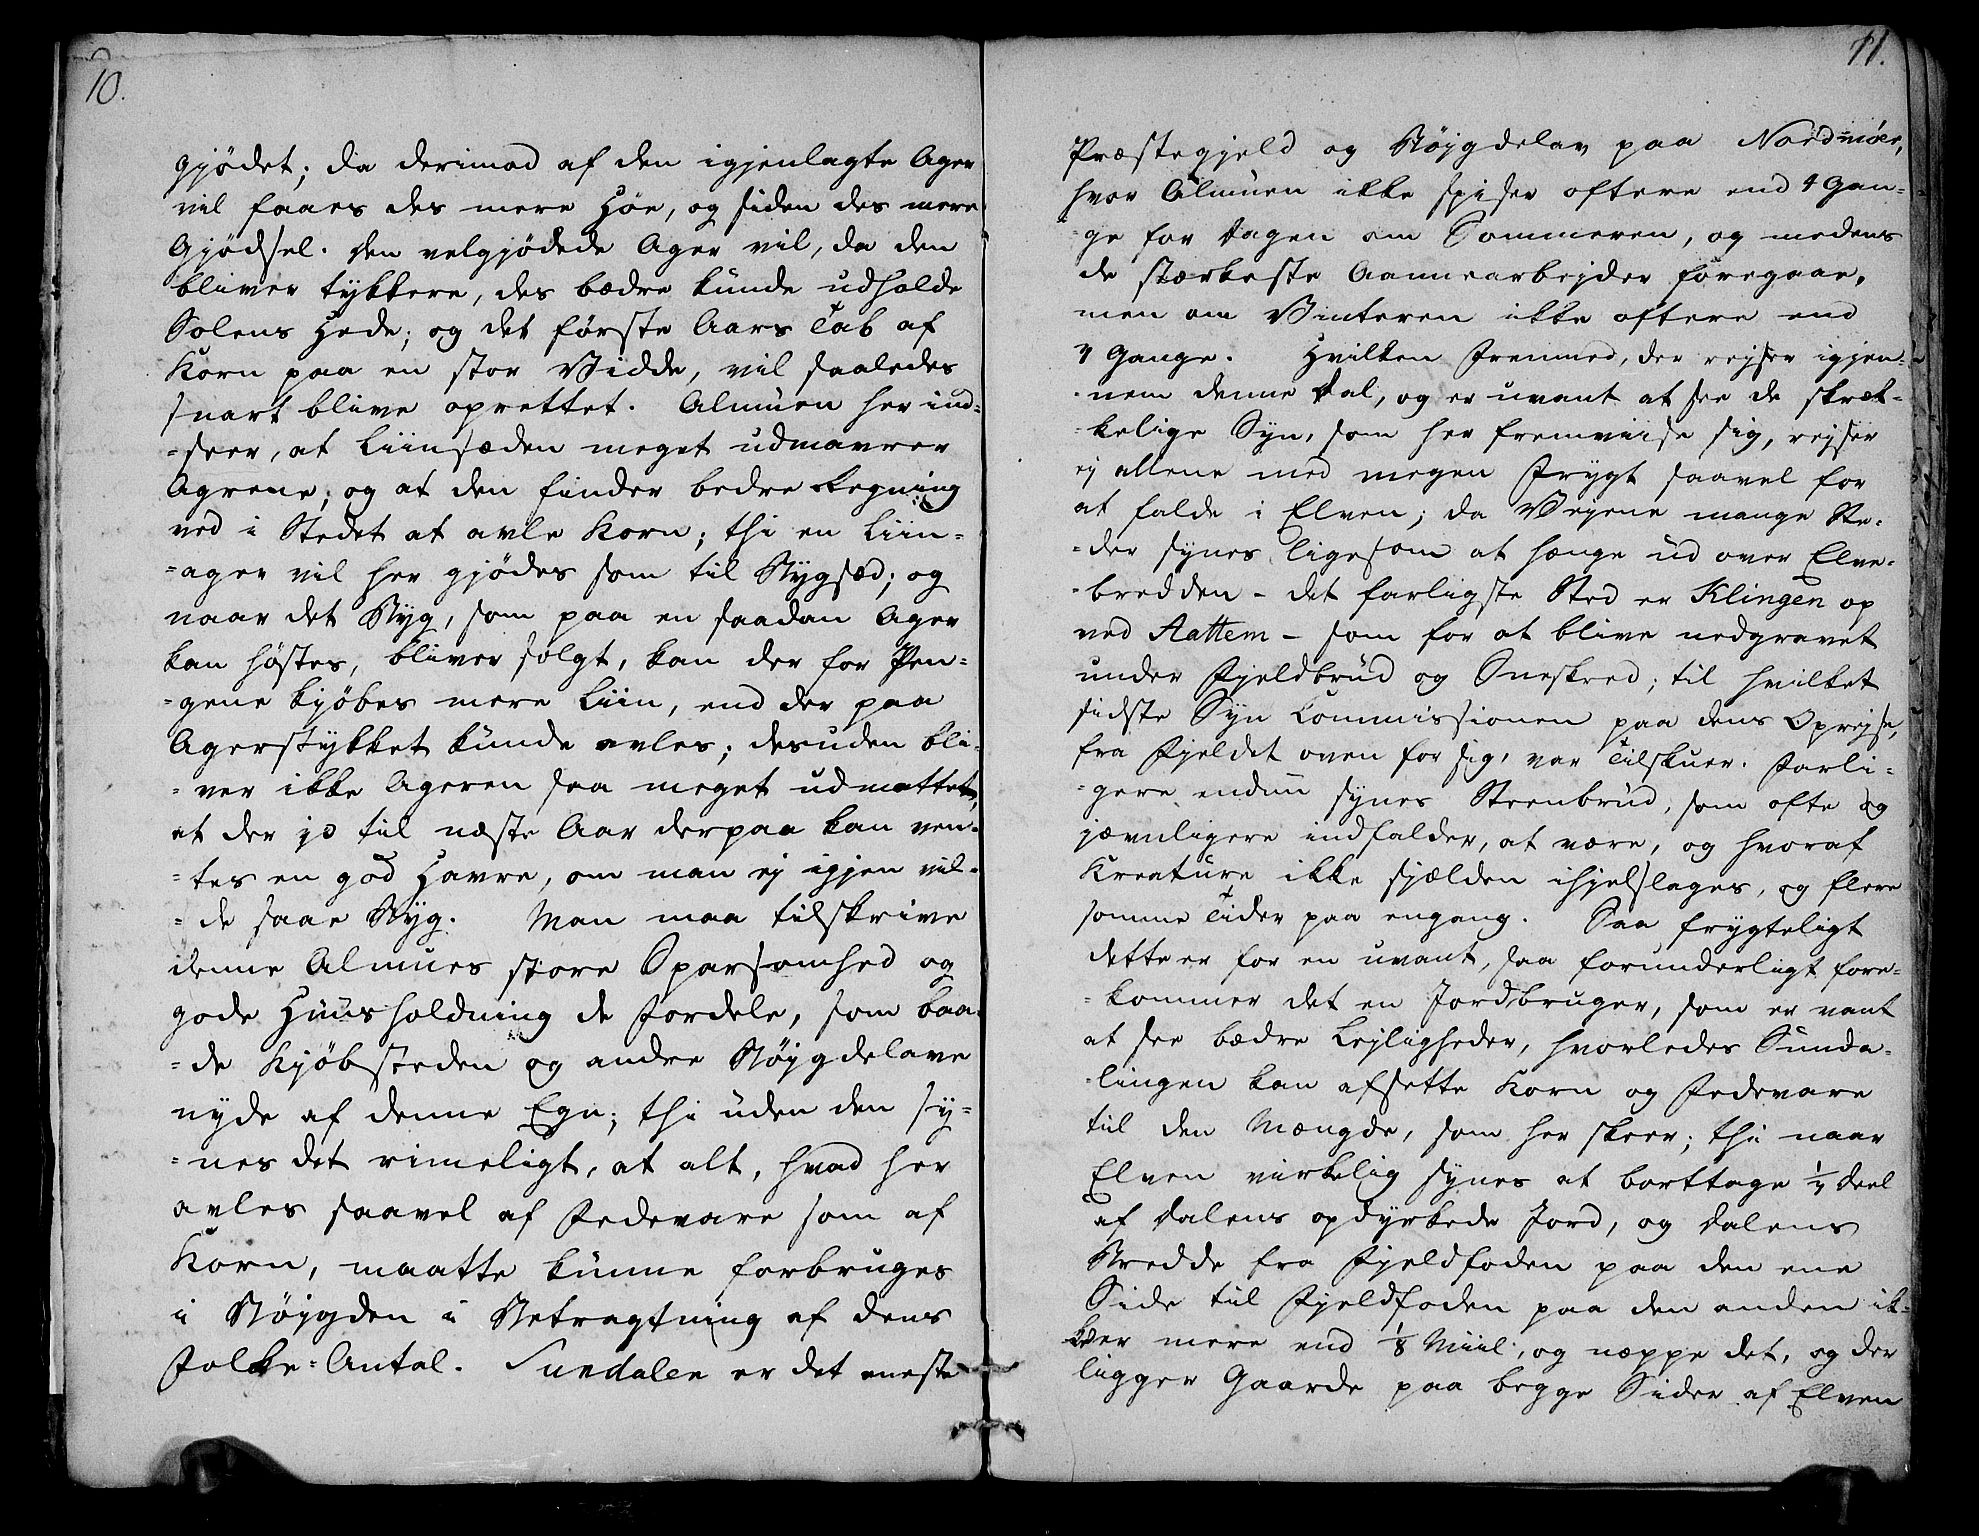 10.
gjødet; da derimod af den igjenlagte Ager
vil faaes des mere Høe, og siden des mere
Gjødsel. Den velgjødede Ager vil, da den
bliver tykkere, des bædre kunde udholde
Solens Hede; og det første Aars Tab af
Korn paa en stor Vidde, vil saaledes
snart blive oprettet. Almuen her ind-
=seer, at Liinsæden meget udmavrer
Agrene; og at den finder bedre Regning
ved i Stedet at avle Korn; thi en Liin=
=ager vil her gjødes som til Bygsæd; og
naar det Byg, som paa en saadan Ager
kan høstes, bliver solgt, kan der for Pen=
=gene kjøbes mere Liin, end der paa
Agerstykket kunde avles; desuden bli-
=ver ikke Ageren saa meget udmattet,
at der jo til næste Aar derpaa kan ven-
=tes en god Havre, om man ej igjen vil-
=de saae Byg. Man maa tilskrive
denne Almues store Sparsomhed og
gode Huusholdning de Fordele, som baa-
=de Kjøbsteden og andre Bøjgdelave
nyde af denne Egn; thi uden den sy=
=nes det rimeligt, at alt, hvad her
avles saavel af Fedevare som af
Korn, maatte kunne forbruges
i Bøjgden i Betragtning af dens
Folke=Antal. Sundalen er det eneste
11.
Præstegjeld og Bøjgdelav paa Nordmøer,
hvor Almuen ikke spiser oftere end 4 Gan-
=ge for Dagen om Sommeren, og medens
de stærkeste Aannearbejder foregaae,
men om Vinteren ikke oftere end
3 Gange. Hvilken Fremmed, der rejser igjen-
=nem denne Dal, og er uvant at see de skræk-
=kelige Syn, som her fremviise sig, rejser
ej allene med megen Frygt saavel for
at falde i Elven; da Vejene mange Ste-
=der synes ligesom at hænge ud over Elve-
=bredden - det farligste Sted er Klingen op
ved Aattem - som for at blive nedgravet
under Fjeldbrud og Sneskred; til hvilket
sidste Syn Commissionen paa dens Oprejse,
fra Fjeldet oven for sig, var Tilskuer. Farli-
=gere endnu synes Steenbrud, som ofte og
jævnligere indfalder, at være, og hvoraf
Kreature ikke sjælden ihjelslages, og flere
somme Tider paa engang. Saa frygteligt
dette er for en uvant, saa forunderligt fore-
=kommer det en Jordbruger, som er vant
at see bædre Lejligheder, hvorledes Sunda-
=lingen kan afsette Korn og Fedevare
til den Mængde, som her skeer; thi naar
Elven virkelig synes at borttage 1/3 Deel
af Dalens opdyrkede Jord, og Dalens
Bredde fra Fjeldfoden paa den ene
Side til Fjeldfoden paa den anden ik-
ke er mere end 1/8 Miil, og næppe det, og der
ligger Gaarde paa begge Sider af Elven